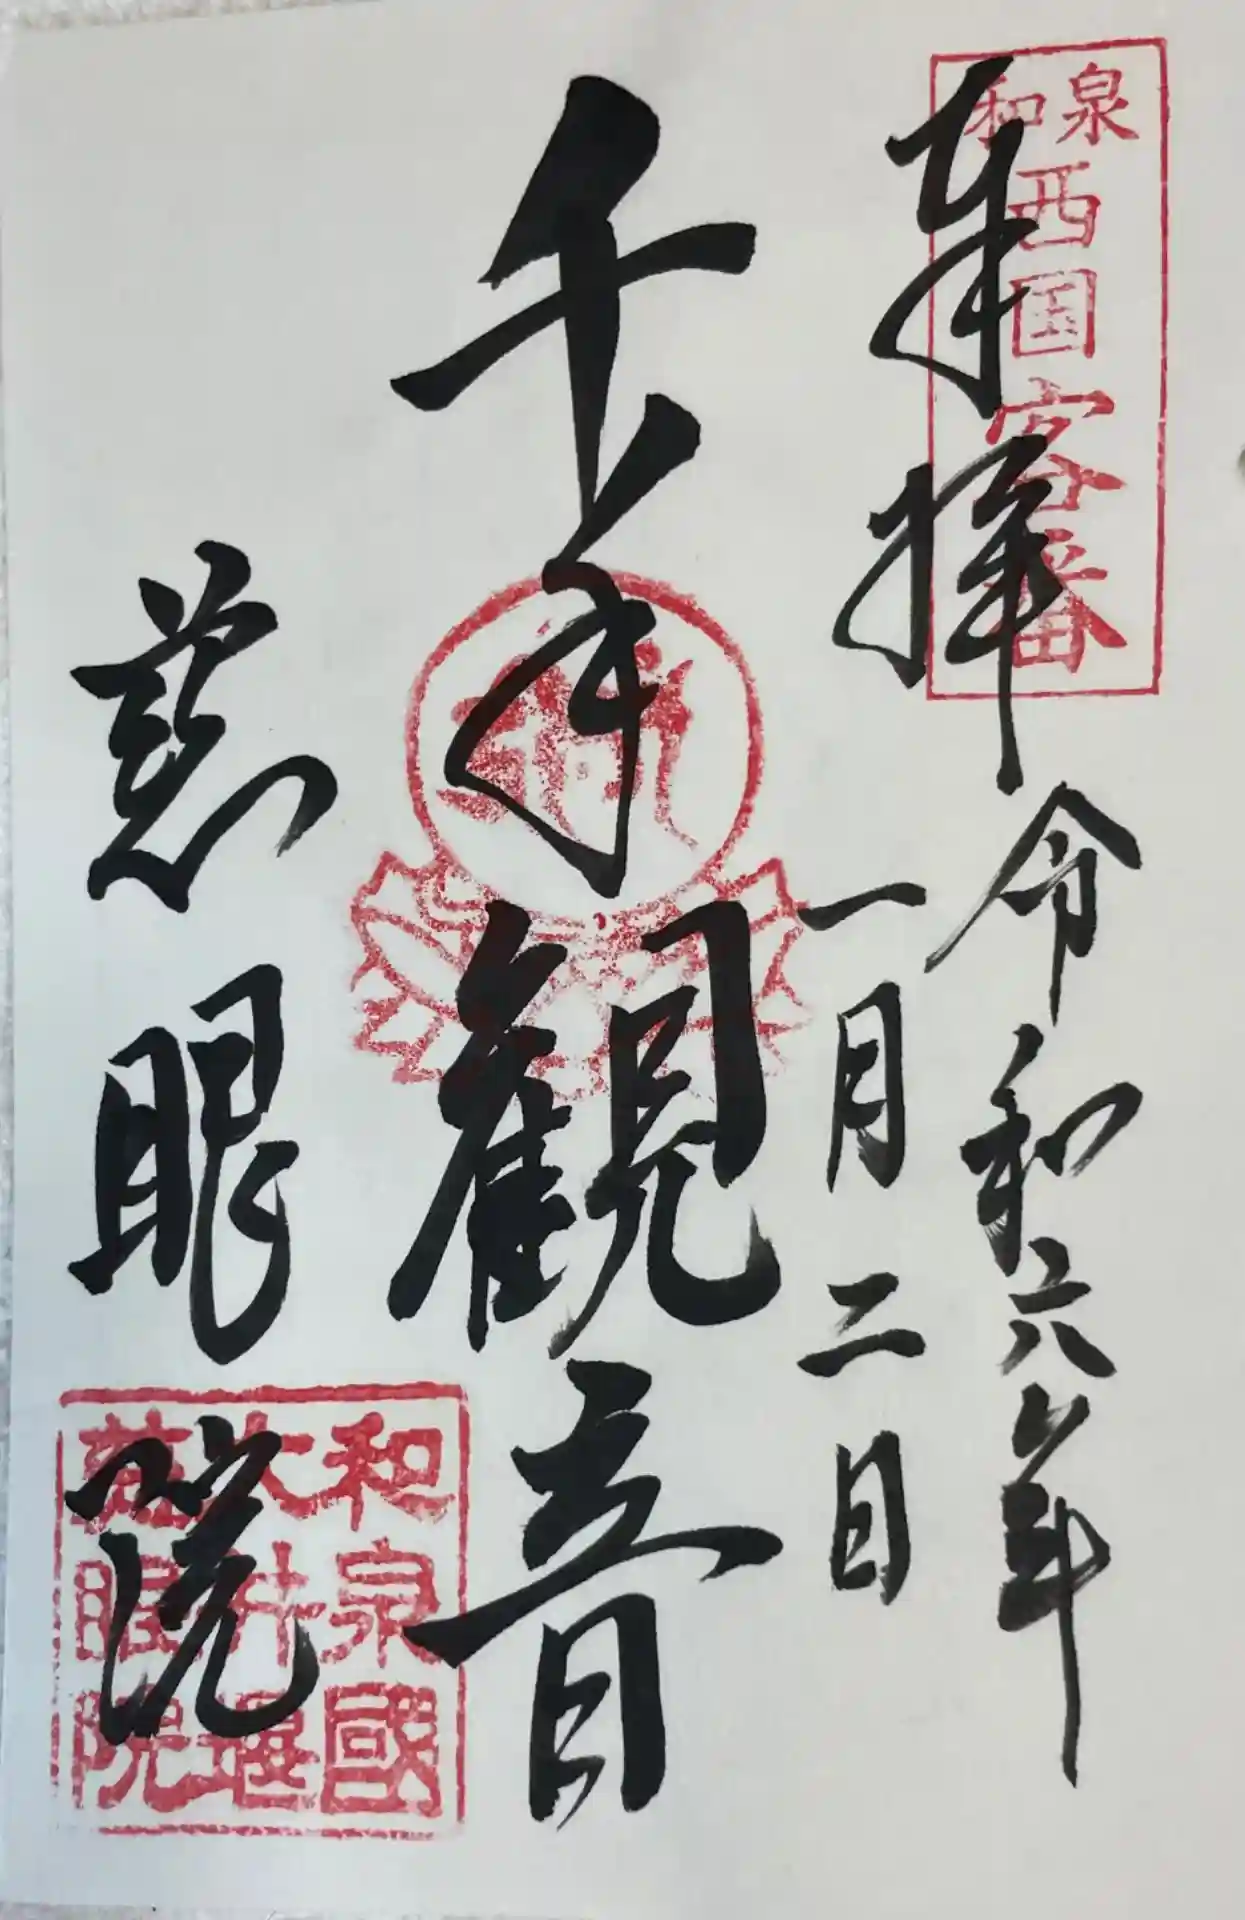 和泉
西国
客番
奉拝
令和六年
一月二日
千手観音
慈眼院
和泉國
大井堰
慈眼院